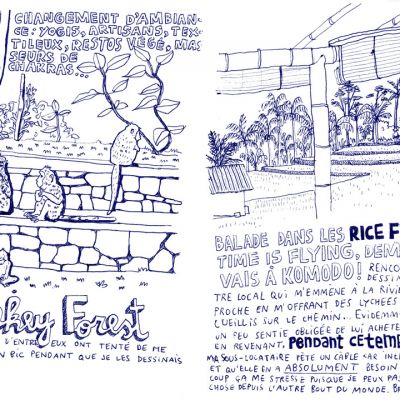 CHANGEMENT D'AMBIAN-
CE: YOGIS, ARTISANS, TEX-
TILEUX, RESTOS VÉGÉ, MAS
SEURS DE
CHAKRAS...
key Forest
D'ENTRE EUX ONT TENTÉ DE ME
PIC PENDANT QUE JE LES DESSINAIS
BALADE DANS LES RICE F
TIME IS FLYING, DEM
VAIS À KOMODO! RENCO
DESSIN
TRE LOCAL QUI M'EMMÈNE À LA RIVIÈ
PROCHE EN M'OFFRANT DES LYCHEES
CUEILLIS SUR LE CHEMIN... EVIDEMM
UN PEU SENTIE OBLIGÉE DE LUI ACHETE
EN REVENANT, PENDANT CE TEMP
MA SOUS-LOCATAIRE PÈTE UN CÂBLE CAR INTER
ET QU'ELLE EN A ABSOLUMENT BESOIN
COUP ÇA ME STRESSE PUISQUE JE PEUX PAS
CHOSE DEPUIS L'AUTRE BOUT DU MONDE. BR